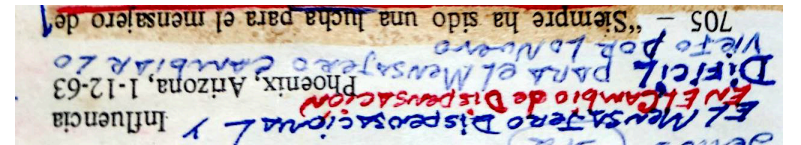 EL MENSAJERO DISPENSACIONAL Y Influencia
EN EL CAMBIO de DISPENSACION
Phoenix, Arizona, 1-12-63
DIFICIL PARA EL MENSAJERO CAMBIAR LO
VIEJO POR LO NUEVO
705 – “Siempre ha sido una lucha para el mensajero de